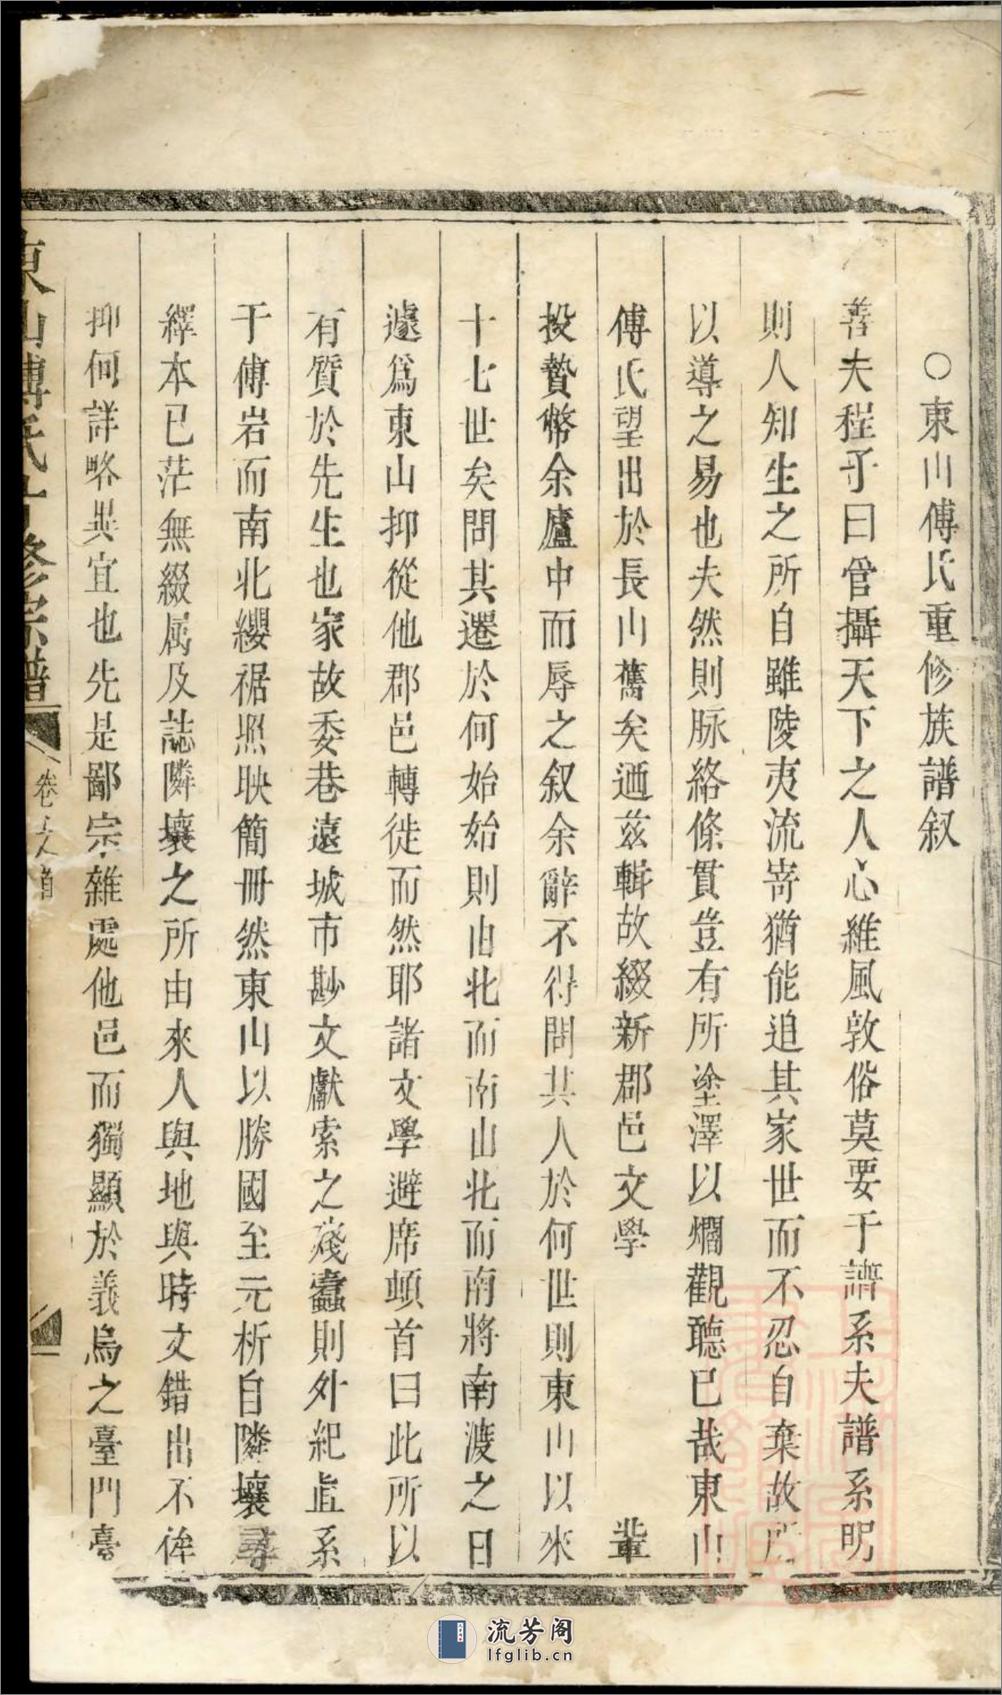 ○東山傅氏重修族譜叙
善夫程子曰管攝天下之人心維風敦俗莫要于譜系夫譜系明
則人知生之所自雖陵夷流寄猶能追其家世而不忍自棄故所
以導之易也夫然則脉絡條貫豈有所塗澤以爛觀聽已哉東山
傅氏望出於長山舊矣迺茲輯故綴新郡邑文學 輩
投贄幣余廬中而辱之叙余辭不得問其人於何世則東山以來
十七世矣問其遷於何始始則由北而南山北而南將南渡之日
遽爲東山抑從他郡邑轉徙而然耶諸文學避席頓首曰此所以
有質於先生也家故委巷遠城市尠文獻索之殘蠹則外紀直系
于傅岩而南北纓裾照映簡冊然東山以勝國至元析自隣壤尋
繹本已茫無綴属及誌隣壤之所由來人與地與時文錯出不侔
抑何詳略異宜也先是鄙宗雜處他邑而獨顯於義烏之臺門臺
東山傅氏 修宗譜 卷之首
流芳阁
lfglib.cn